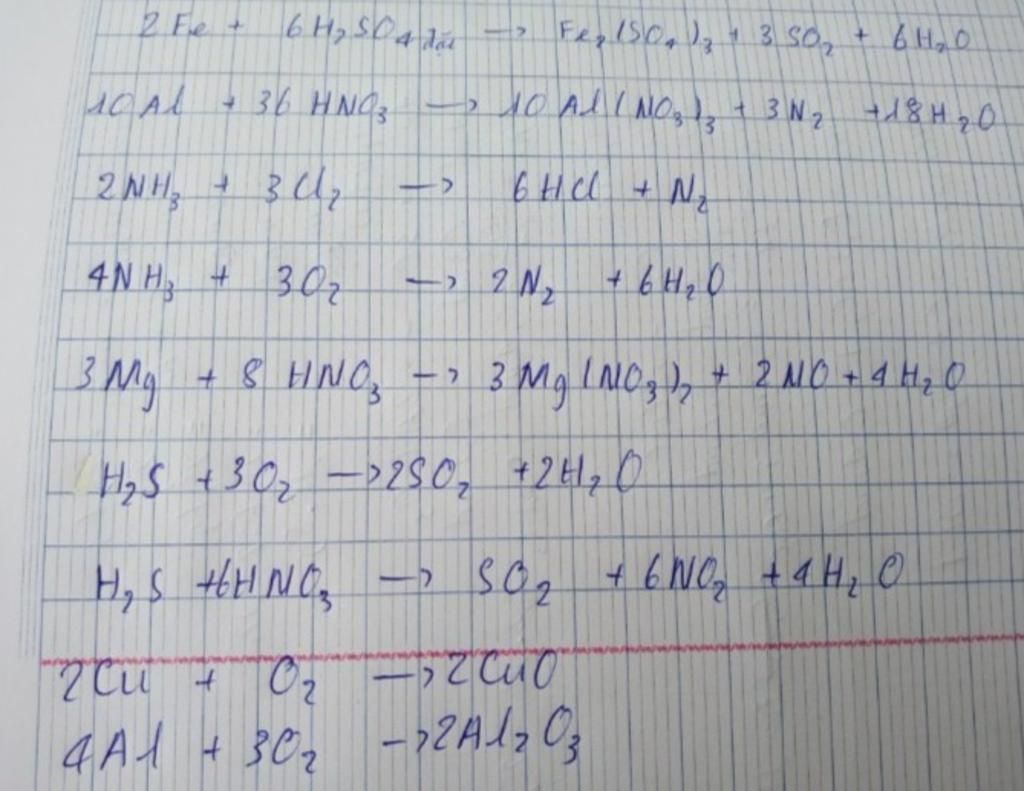 2Fe + 6H₂SO₄ đặc → Fe₂(SO₄)₃ + 3SO₂ + 6H₂O
10Al + 36HNO₃ → 10Al(NO₃)₃ + 3N₂ + 18H₂O
2NH₃ + 3Cl₂ → 6HCl + N₂
4NH₃ + 3O₂ → 2N₂ + 6H₂O
3Mg + 8HNO₃ → 3Mg(NO₃)₂ + 2NO + 4H₂O
H₂S + 3O₂ → 2SO₂ + 2H₂O
H₂S + 6HNO₃ → SO₂ + 6NO₂ + 4H₂O
2Cu + O₂ → 2CuO
4Al + 3O₂ → 2Al₂O₃